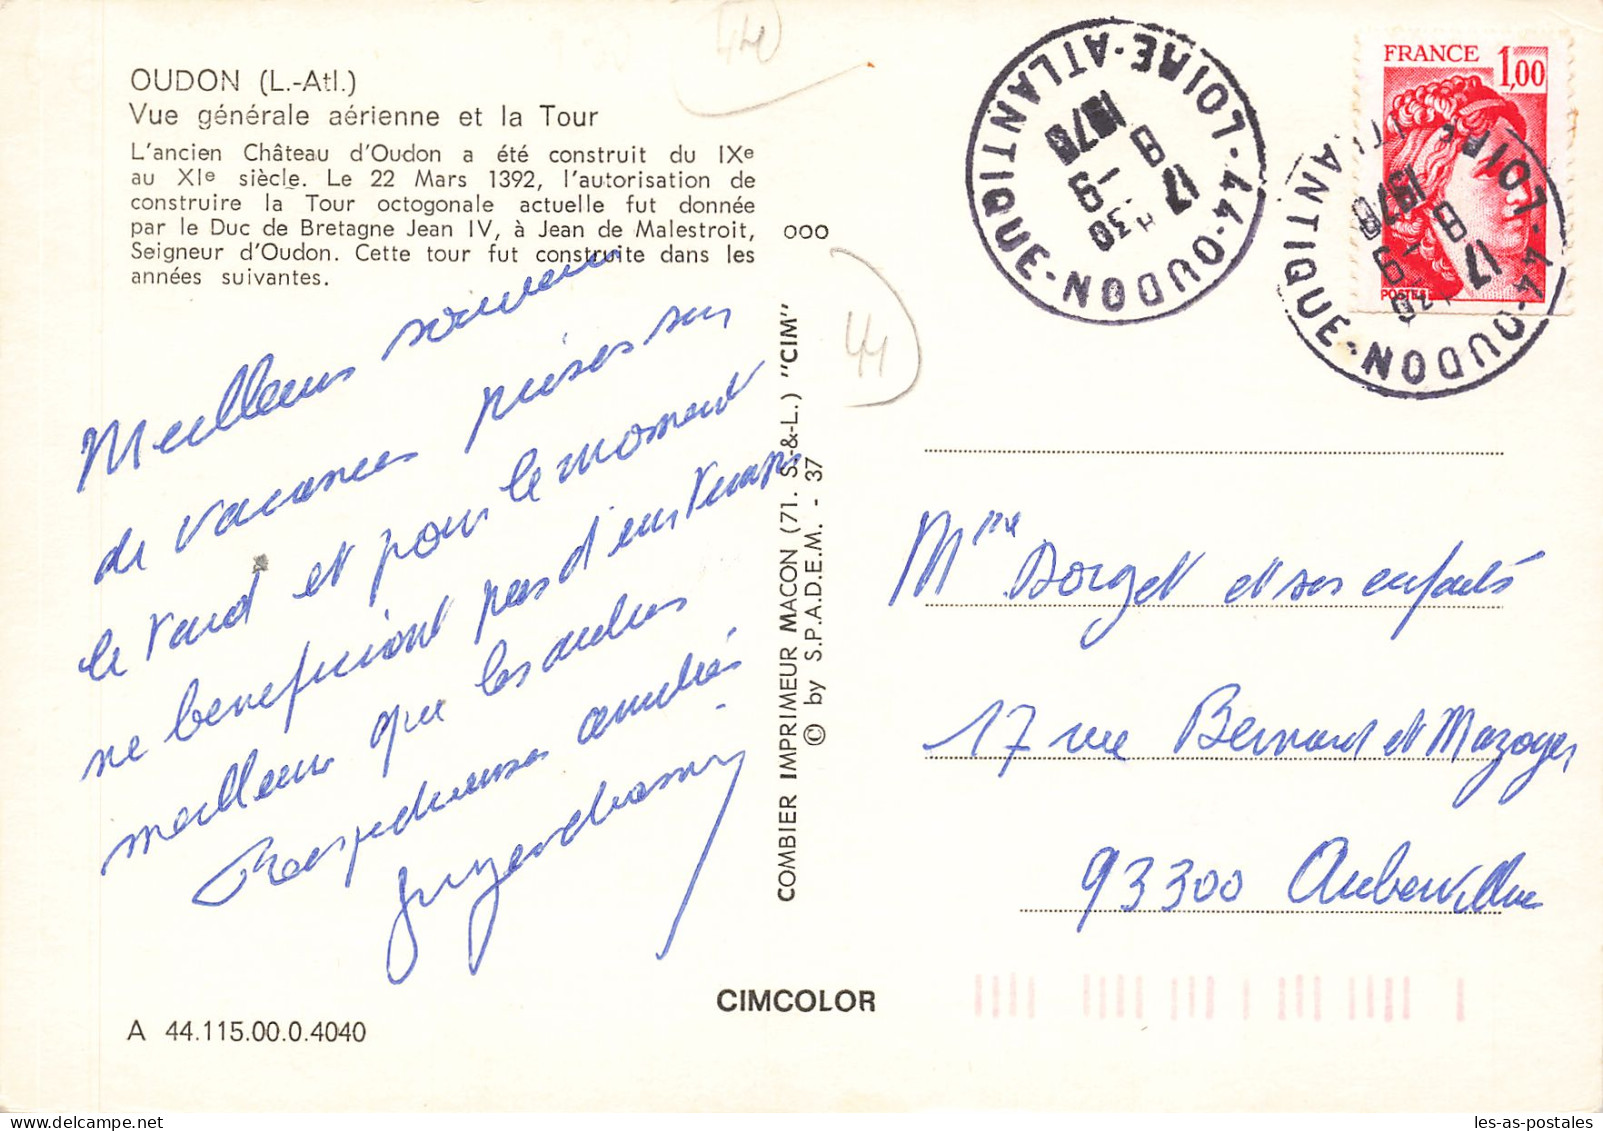 OUDON (L.-Atl.)
Vue générale aérienne et la Tour
L'ancien Château d'Oudon a été construit du IXe
au XIe siècle. Le 22 Mars 1392, l'autorisation de
construire la Tour octogonale actuelle fut donnée
par le Duc de Bretagne Jean IV, à Jean de Malestroit,
Seigneur d'Oudon. Cette tour fut construite dans les
années suivantes.
000
Meilleurs souvenirs
de vacances prises sur
le tard et pour le moment
ne bénéficiant pas d'un temps
meilleur que les autres
Respectueuses amitiés
COMBIER IMPRIMEUR MACON (71. S.-&-L.) "CIM"
© by S.P.A.D.E.M. - 37
44
44
FRANCE 1,00
POSTES
44-OUDON-LOIRE-ATLANTIQUE
17 -9
44-OUDON-LOIRE-ATLANTIQUE
17 -9
Mme Dorget et ses enfants
17 rue Bernard et Mazoyer
93300 Aubervilliers
CIMCOLOR
A 44.115.00.0.4040
les-as-postales